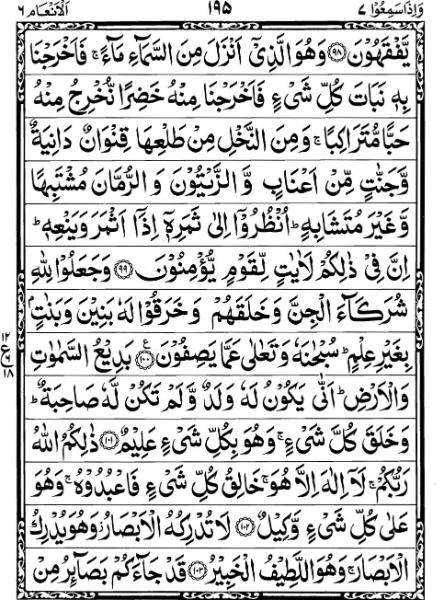 وَاِذَا سَمِعُوْا ٧ ١٩٥ اَلْاَنْعَام ٦
يَّفْقَهُوْنَ ﴿٩٨﴾ وَهُوَ الَّذِىْٓ اَنْزَلَ مِنَ السَّمَآءِ مَآءً ۚ فَاَخْرَجْنَا
بِهٖ نَبَاتَ كُلِّ شَىْءٍ فَاَخْرَجْنَا مِنْهُ خَضِرًا نُّخْرِجُ مِنْهُ
حَبًّا مُّتَرَاكِبًا ۚ وَمِنَ النَّخْلِ مِنْ طَلْعِهَا قِنْوَانٌ دَانِيَةٌ
وَّجَنّٰتٍ مِّنْ اَعْنَابٍ وَّالزَّيْتُوْنَ وَالرُّمَّانَ مُشْتَبِهًا
وَّغَيْرَ مُتَشَابِهٍ ؕ اُنْظُرُوْٓا اِلٰى ثَمَرِهٖٓ اِذَآ اَثْمَرَ وَيَنْعِهٖ ؕ
اِنَّ فِىْ ذٰلِكُمْ لَاٰيٰتٍ لِّقَوْمٍ يُّؤْمِنُوْنَ ﴿٩٩﴾ وَجَعَلُوْا لِلّٰهِ
شُرَكَآءَ الْجِنَّ وَخَلَقَهُمْ وَخَرَقُوْا لَهٗ بَنِيْنَ وَبَنٰتٍۢ
بِغَيْرِ عِلْمٍ ؕ سُبْحٰنَهٗ وَتَعٰلٰى عَمَّا يَصِفُوْنَ ﴿١٠٠﴾ بَدِيْعُ السَّمٰوٰتِ
١٢
ع
١٨
وَالْاَرْضِ ؕ اَنّٰى يَكُوْنُ لَهٗ وَلَدٌ وَّلَمْ تَكُنْ لَّهٗ صَاحِبَةٌ ؕ
وَخَلَقَ كُلَّ شَىْءٍ ۚ وَهُوَ بِكُلِّ شَىْءٍ عَلِيْمٌ ﴿١٠١﴾ ذٰلِكُمُ اللّٰهُ
رَبُّكُمْ ۚ لَآ اِلٰهَ اِلَّا هُوَ ۚ خَالِقُ كُلِّ شَىْءٍ فَاعْبُدُوْهُ ۚ وَهُوَ
عَلٰى كُلِّ شَىْءٍ وَّكِيْلٌ ﴿١٠٢﴾ لَا تُدْرِكُهُ الْاَبْصَارُ وَهُوَ يُدْرِكُ
الْاَبْصَارَ ۚ وَهُوَ اللَّطِيْفُ الْخَبِيْرُ ﴿١٠٣﴾ قَدْ جَآءَكُمْ بَصَآئِرُ مِنْ